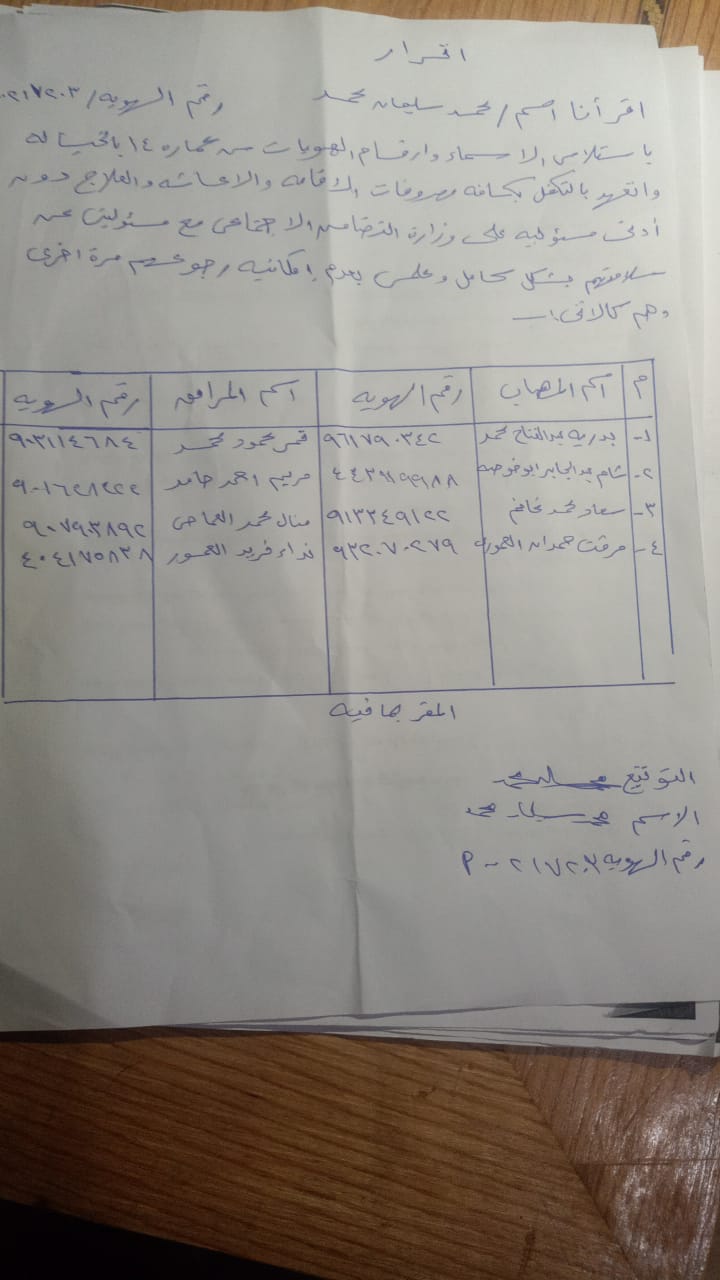 اقرار
اقر أنا اسم / محمد سليمان محمد رقم الهويه /
باستلامى الاسماء وارقام الهويات من عماره ١٤ بالخياله
واتعهد بالتكفل بكافه مصروفات الاقامه والاعاشه والعلاج دون
أدنى مسئوليه على وزارة التضامن الاجتماعى مع مسئوليتى عن
سلامتهم بشكل كامل وعلمى بعدم إمكانيه رجوعهم مرة اخرى
وهم كالاتى :ـ
م اسم المصاب رقم الهويه اسم المرافق رقم الهويه
١- بدريه عبدالفتاح محمد ٩٦١٧٩٠٣٤٢ قمر محمود محمد ٩٠٣١١٤٦٨٤
٢- شام عبدالجابر ابو خوصه مريم احمد حامد ٩٠١٦٢٨٢٢٢
٣- سعاد محمد غانم ٩١٣٣٤٩١٢٢ منال محمد ٩٠٧٩٣٨٩٢
٤- مرفت حمدان العمورى ٩٣٢٠٧٠٢٧٩ نداء فريد العمور ٤٠٤١٧٥٨٣٨
المقر بما فيه
التوقيع
الاسم محمد سليمان محمد
رقم الهويه